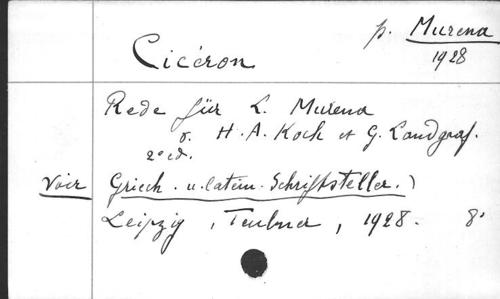 p. Murena
1928
Cicéron
Rede für L. Murena
v. H. A. Koch et G. Landgraf.
2e éd.
Voir Griech. u. latein. Schriftsteller.)
Leipzig, Teubner, 1928. 8°